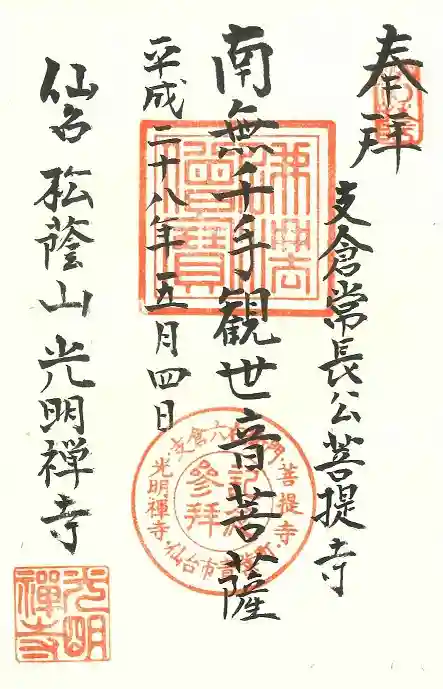 奉拝
支倉常長公菩提寺
南無千手観世音菩薩
平成二十八年五月四日
仙台 松蔭山 光明禅寺
佛法僧寳
菩提寺
光明禅寺
参拝
記念
光明
禅寺